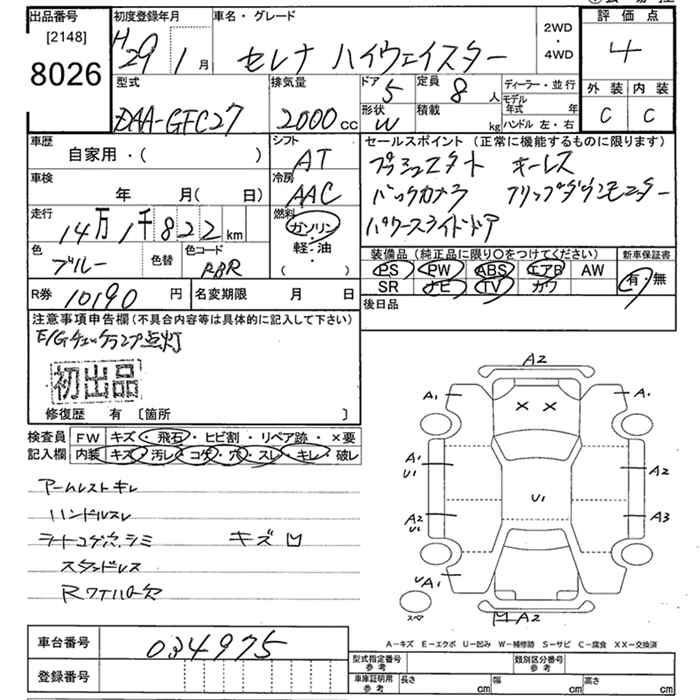 出品番号 初度登録年月 車名・グレード 2WD・4WD 評価点
[2148]
8026 H29 1月 セレナ ハイウェイスター 4
外装 内装
C C
型式 排気量 ドア 定員 ディーラー・並行
DAA-GFC27 2000cc 5 8人 モデル年式 年
形状 積載 ハンドル 左・右
W kg
車歴 シフト セールスポイント(正常に機能するものに限ります)
自家用・( ) AT プッシュスタート キーレス
車検 冷房 バックカメラ フリップダウンモニター
年 月( 日) AAC パワースライドドア
走行 燃料
14万1千822km ガソリン・軽・油( )
色 色替 色コード 装備品(純正品に限り○をつけてください) 新車保証書
ブルー RBR PS PW ABS エアB AW 有・無
SR ナビ TV カワ
R券 10190円 名変期限 月 日 後日品
注意事項申告欄(不具合内容等は具体的に記入して下さい)
E/Gチェックランプ点灯
初出品
修復歴 有〔箇所 〕
検査員 FW キズ・飛石・ヒビ割・リペア跡・×要
記入欄 内装 キズ・汚レ・コゲ・穴・スレ・キレ・破レ
アームレストキレ
ハンドルスレ
シートコゲ穴、シミ キズ凹
ステップスレ
Rワイパー欠
A2
A1 A1
× ×
A1 U1 A2
U1
A2 U1 A3
UA1
スペア 凹A2
A-キズ E-エクボ U-凹み W-補修跡 S-サビ C-腐食 XX-交換済
車台番号 034975
登録番号
型式指定番号 参考 類別区分番号 参考
車庫証明用 参考 長さ cm 幅 cm 高さ cm